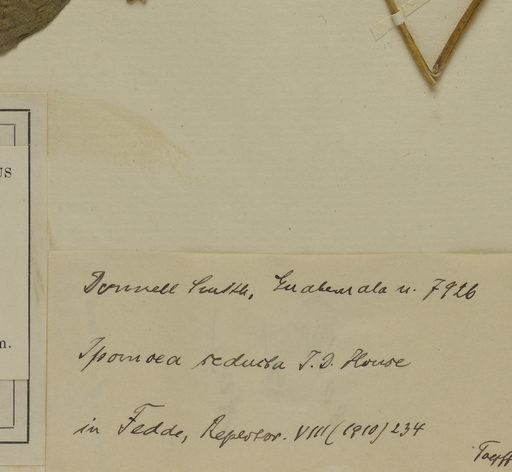 US
m.
Donnell Smith, Guatemala n. 7926
Ipomoea seducta T.D. House
in Fedde, Repertor. VIII (1910) 234